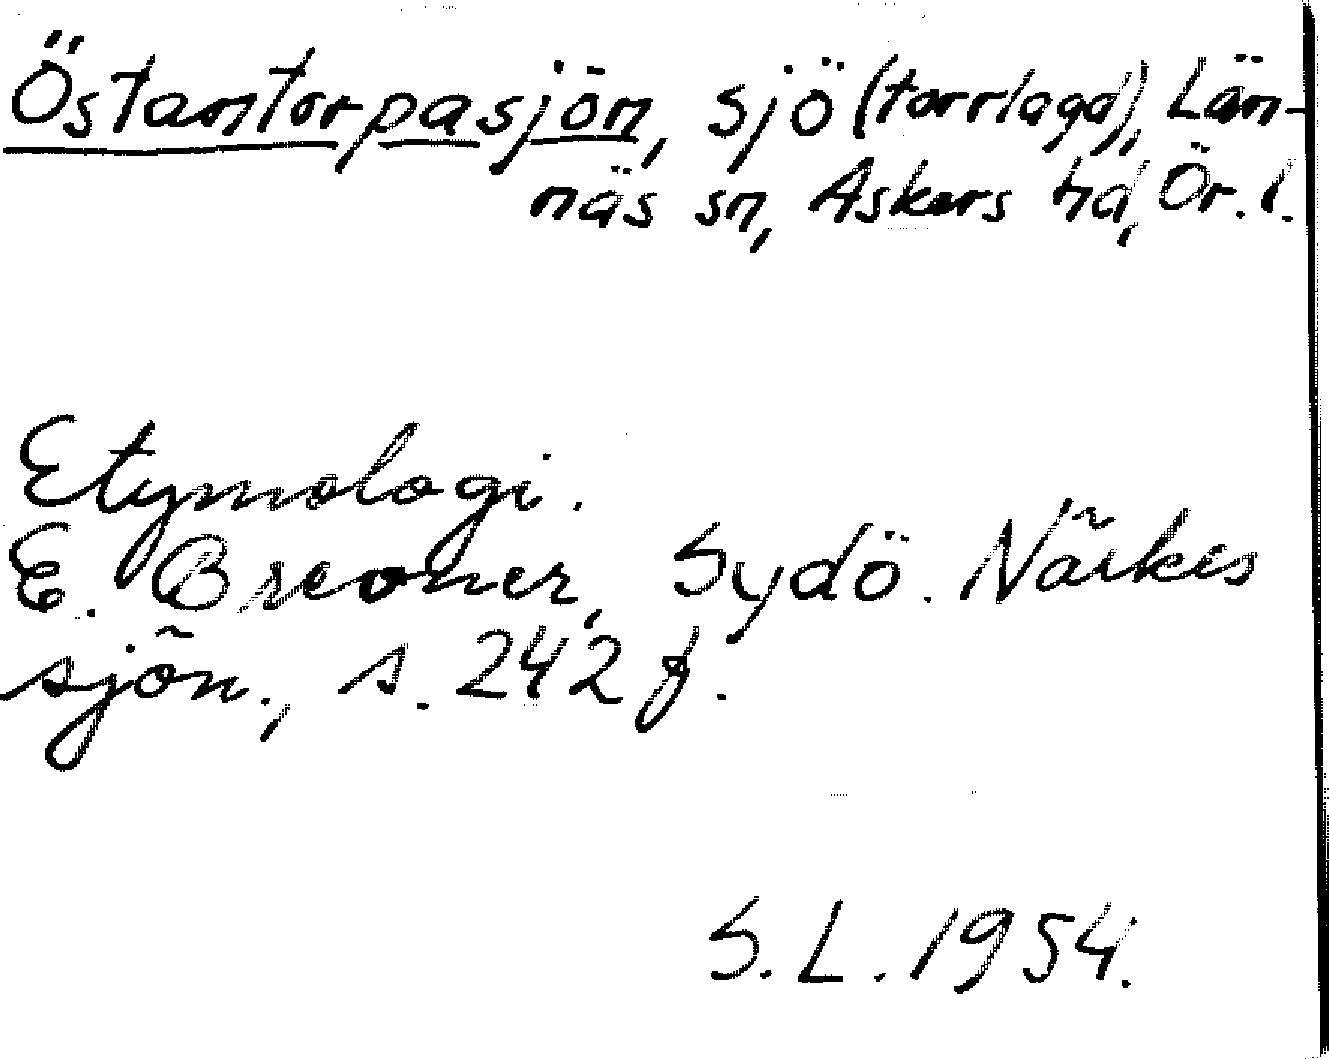 Östantorpasjön, sjö (torrlagd), Län-
näs sn, Askers hd, Ör. l.
Etymologi.
E. Brevner, Sydö. Närkes
sjön., s. 242 f.
S. L. 1954.